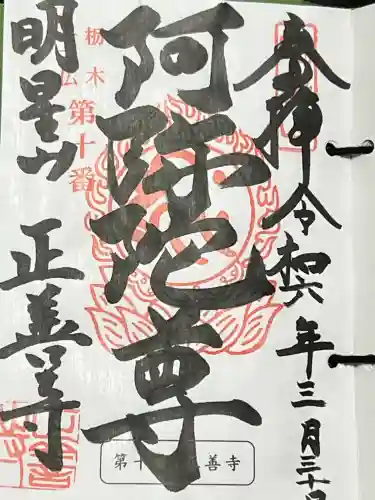 奉拝 令和六年三月三十日
阿弥陀尊
栃木
第十番
明星山 正善寺
第十 善寺